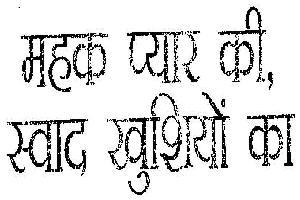 महक प्यार की,
स्वाद खुशियों का